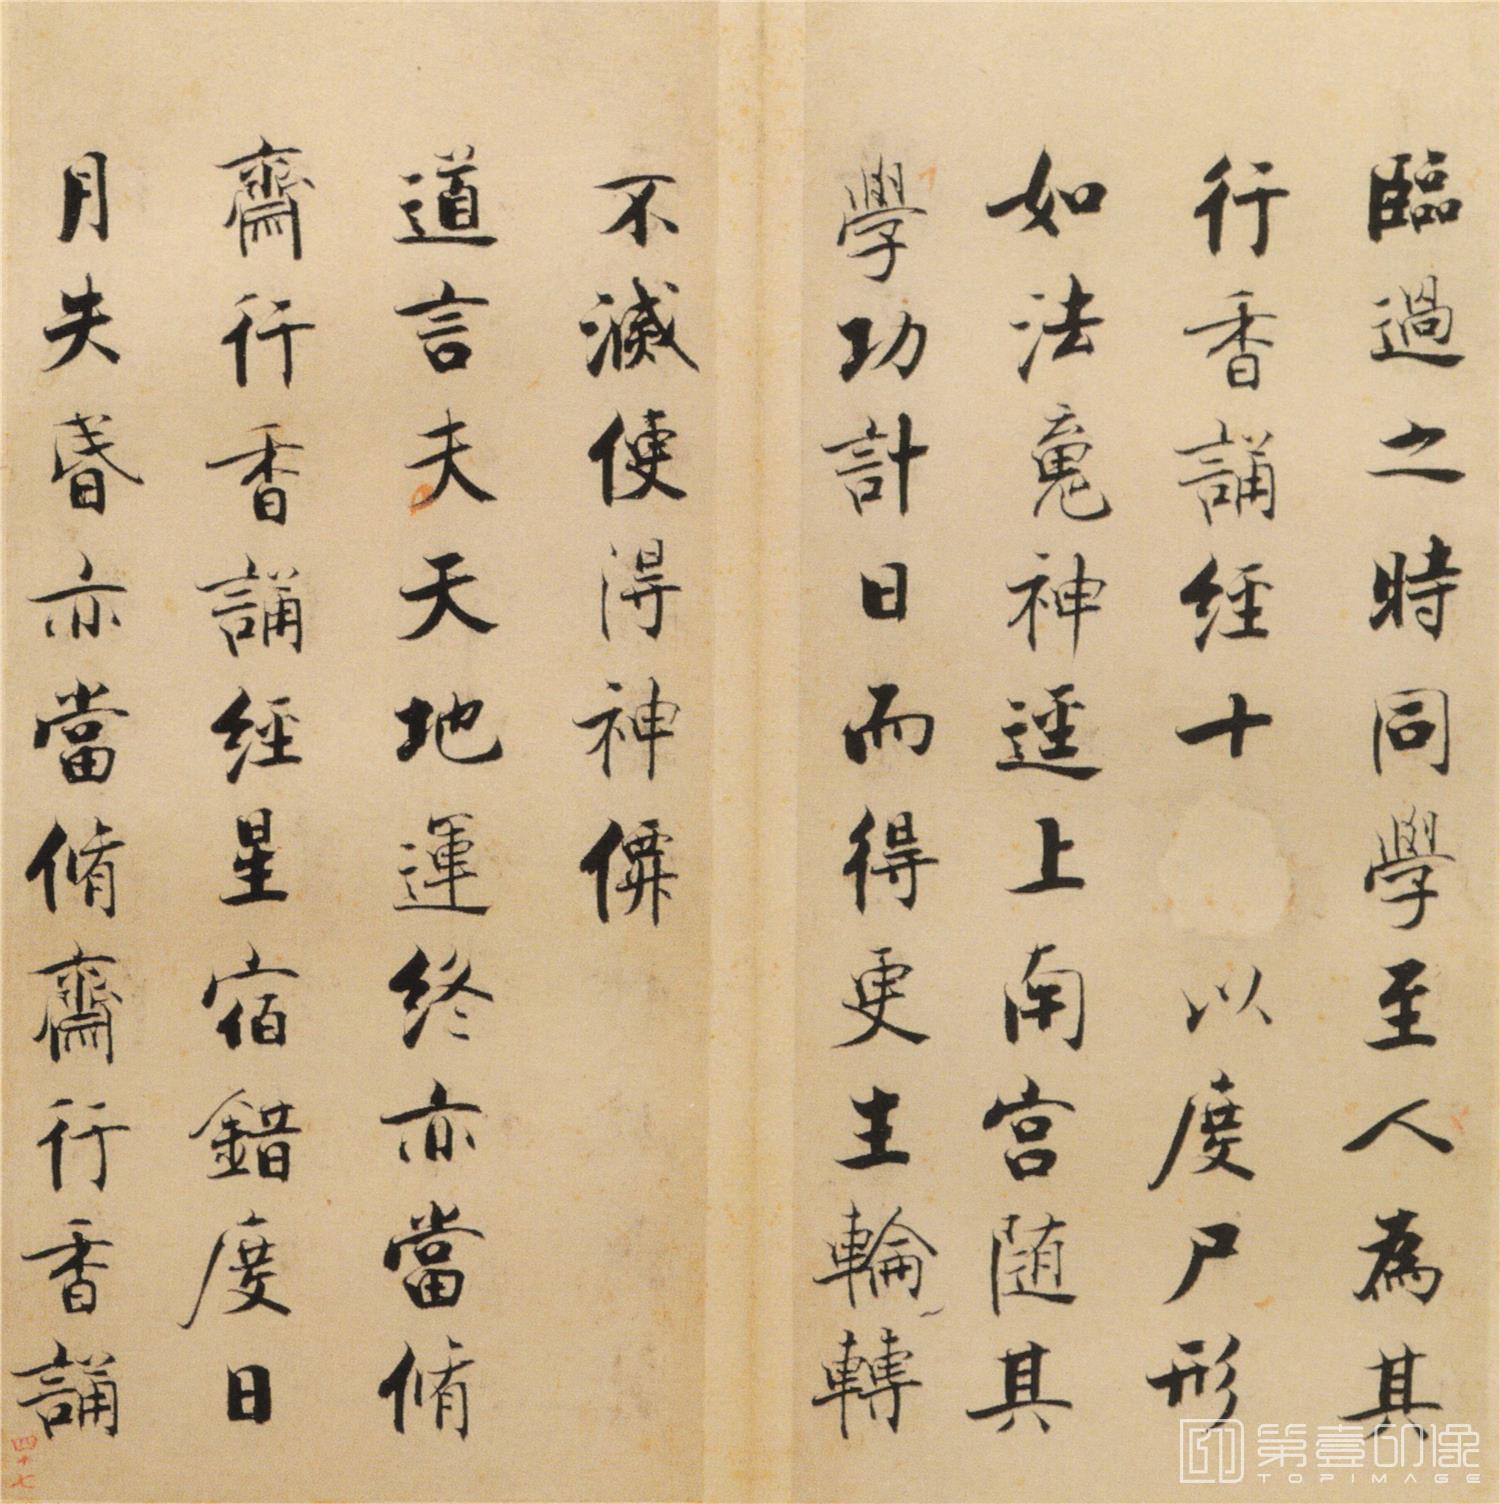 臨過之時同學至人為其
行香誦經十以度尸形
如法魂神逕上南宮随其
學功計日而得更生輪轉
不滅便得神僊
道言夫天地運終亦當脩
齋行香誦經星宿錯度日
月失昬亦當脩齋行香誦
四十七
第壹印像
TOPIMAGE